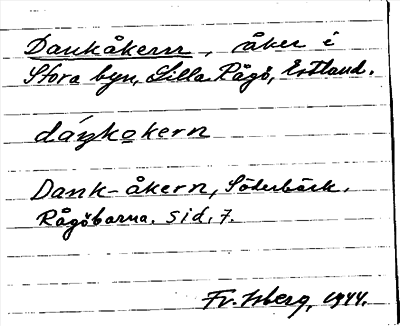 Dankåkern, åker i
Stora byn, Lilla Rågö, Estland.
dáŋkokern
Dank-åkern, Söderbäck.
Rågöbarna. sid. 7.
Fr. Isberg, 1944.